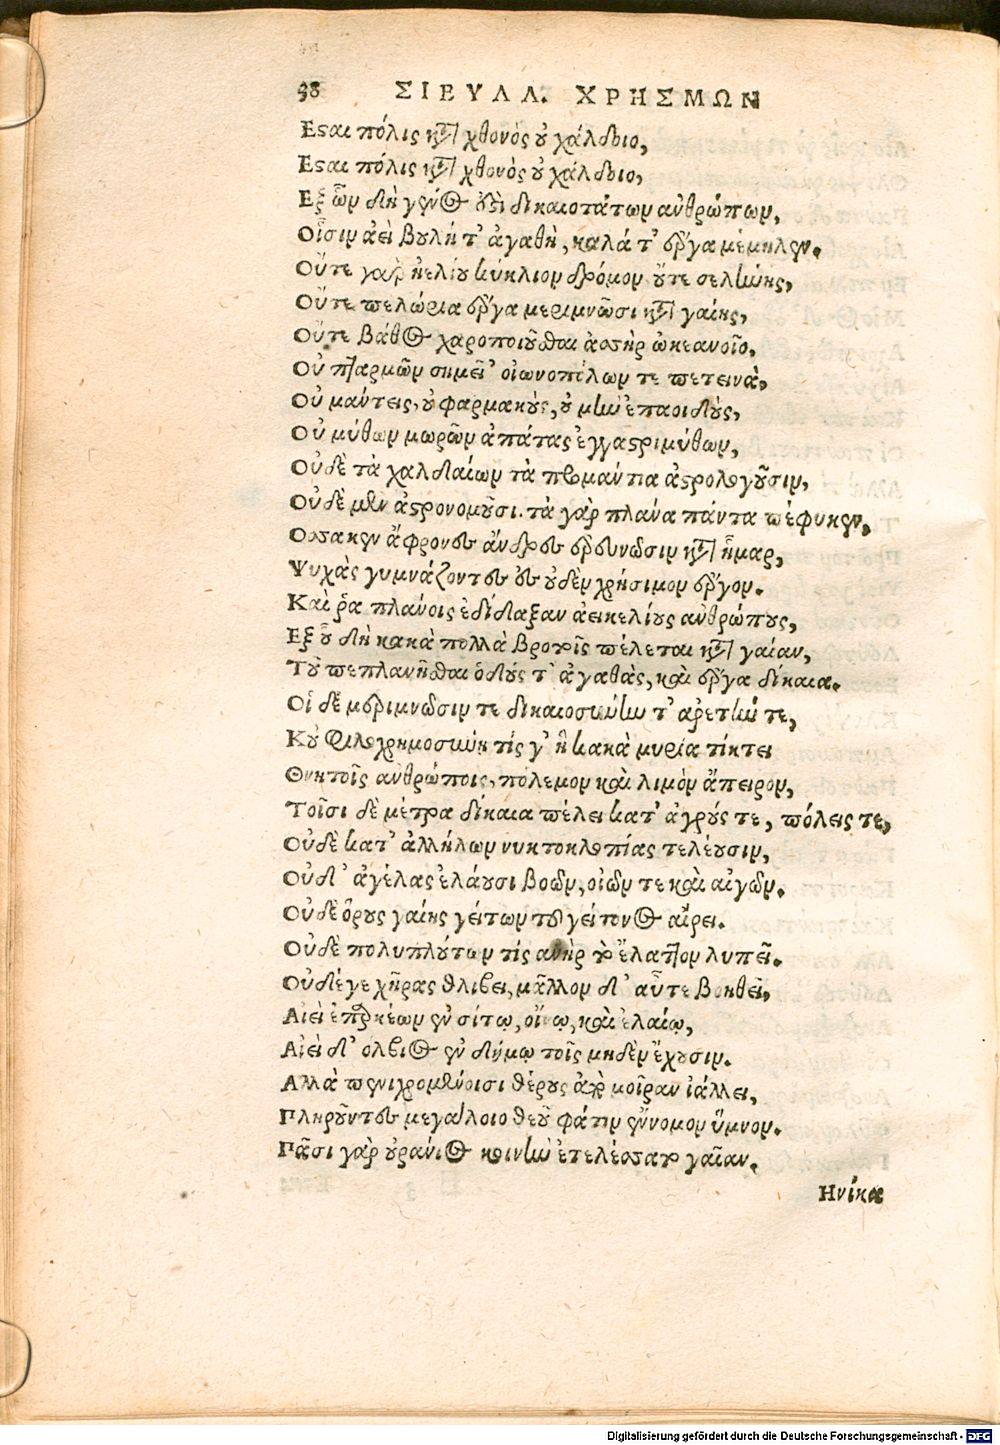 98 ΣΙΒΥΛΛ. ΧΡΗΣΜΩΝ
Εϛαι πόλις κτ̀ χθονὸς ȣ̓ χάλδδιο,
Εϛαι πόλις κτ̀ χθονὸς ȣ̓ χάλδδιο,
Εξ ὧν δὴ γένος ὅϛι δικαιοτάτων ἀνθρώπων,
Οἷσιν ἀεὶ βουλή τ' ἀγαθὴ, καλά τ' ἔργα μέμηλεν.
Οὔτε γαρ ἠελίου κύκλιον δρόμον οὔτε σελήνης,
Οὔτε πελώρια ἔργα μεριμνῶσι κτ̀ γαίης,
Οὔτε βάθος χαροποιοῦ θαλάσσης ὠκεανοῖο,
Οὐ πταρμῶν σημεῖ' οἰωνοπόλων τε πετεινὰ,
Οὐ μάντεις, οὐ φαρμακοὺς, οὐ μὴν ἐπαοιδοὺς,
Οὐ μύθων μωρῶν ἀπάτας ἐγγαϛριμύθων,
Οὐδὲ τὰ χαλδαίων τὰ προμάντια ἀϛρολογοῦσιν,
Οὐδὲ μὲν ἀϛρονομοῦσι. τὰ γὰρ πλάνα πάντα πέφυκεν,
Οσσακεν ἄφρονες ἄνδρες ἐρευνῶσιν κτ̀ ἦμαρ,
Ψυχὰς γυμνάζοντες ἐς οὐδὲν χρήσιμον ἔργον.
Καί ῥα πλάνοις ἐδίδαξαν ἀεικελίους ἀνθρώπους,
Εξ οὗ δὴ κακὰ πολλὰ βροτοῖς πέλεται κτ̀ γαῖαν,
Τοῦ πεπλανῆσθαι ὁδούς τ' ἀγαθὰς, καὶ ἔργα δίκαια.
Οἱ δὲ μεριμνῶσίν τε δικαιοσύνην τ' ἀρετήν τε,
Κοὐ φιλοχρημοσύνη τίς γ' ἣ κακὰ μυρία τίκτει
Θνητοῖς ἀνθρώποις, πόλεμον καὶ λιμὸν ἄπειρον,
Τοῖσι δὲ μέτρα δίκαια πέλει κατ' ἀγρούς τε, πόλεις τε,
Οὐδὲ κατ' ἀλλήλων νυκτοκλοπίας τελέουσιν,
Οὐδ' ἀγέλας ἐλάουσι βοῶν, οἰῶν τε καὶ αἰγῶν.
Οὐδὲ ὅρους γαίης γείτων τοῦ γείτονος αἴρει.
Οὐδὲ πολυπλούτων τίς ἀνὴρ τὸ ἔλαττον λυπεῖ.
Οὐδέγε χῆρας θλίβει, μᾶλλον δ' αὖτε βοηθεῖ,
Αἰεὶ ἐπαρκέων ἐν σίτῳ, οἴνῳ, καὶ ἐλαίῳ,
Αἰεὶ δ' ὄλβιος ἐν δήμῳ τοῖς μηδὲν ἔχουσιν.
Αλλὰ πενιχρομένοισι θέρους ἀπὸ μοῖραν ἰάλλει,
Πληροῦντες μεγάλοιο θεοῦ φάτιν ἔννομον ὕμνον.
Πᾶσι γὰρ οὐράνιος κοινὴν ἐτελέσσατο γαῖαν.
Ηνίκα
Digitalisierung gefördert durch die Deutsche Forschungsgemeinschaft - DFG